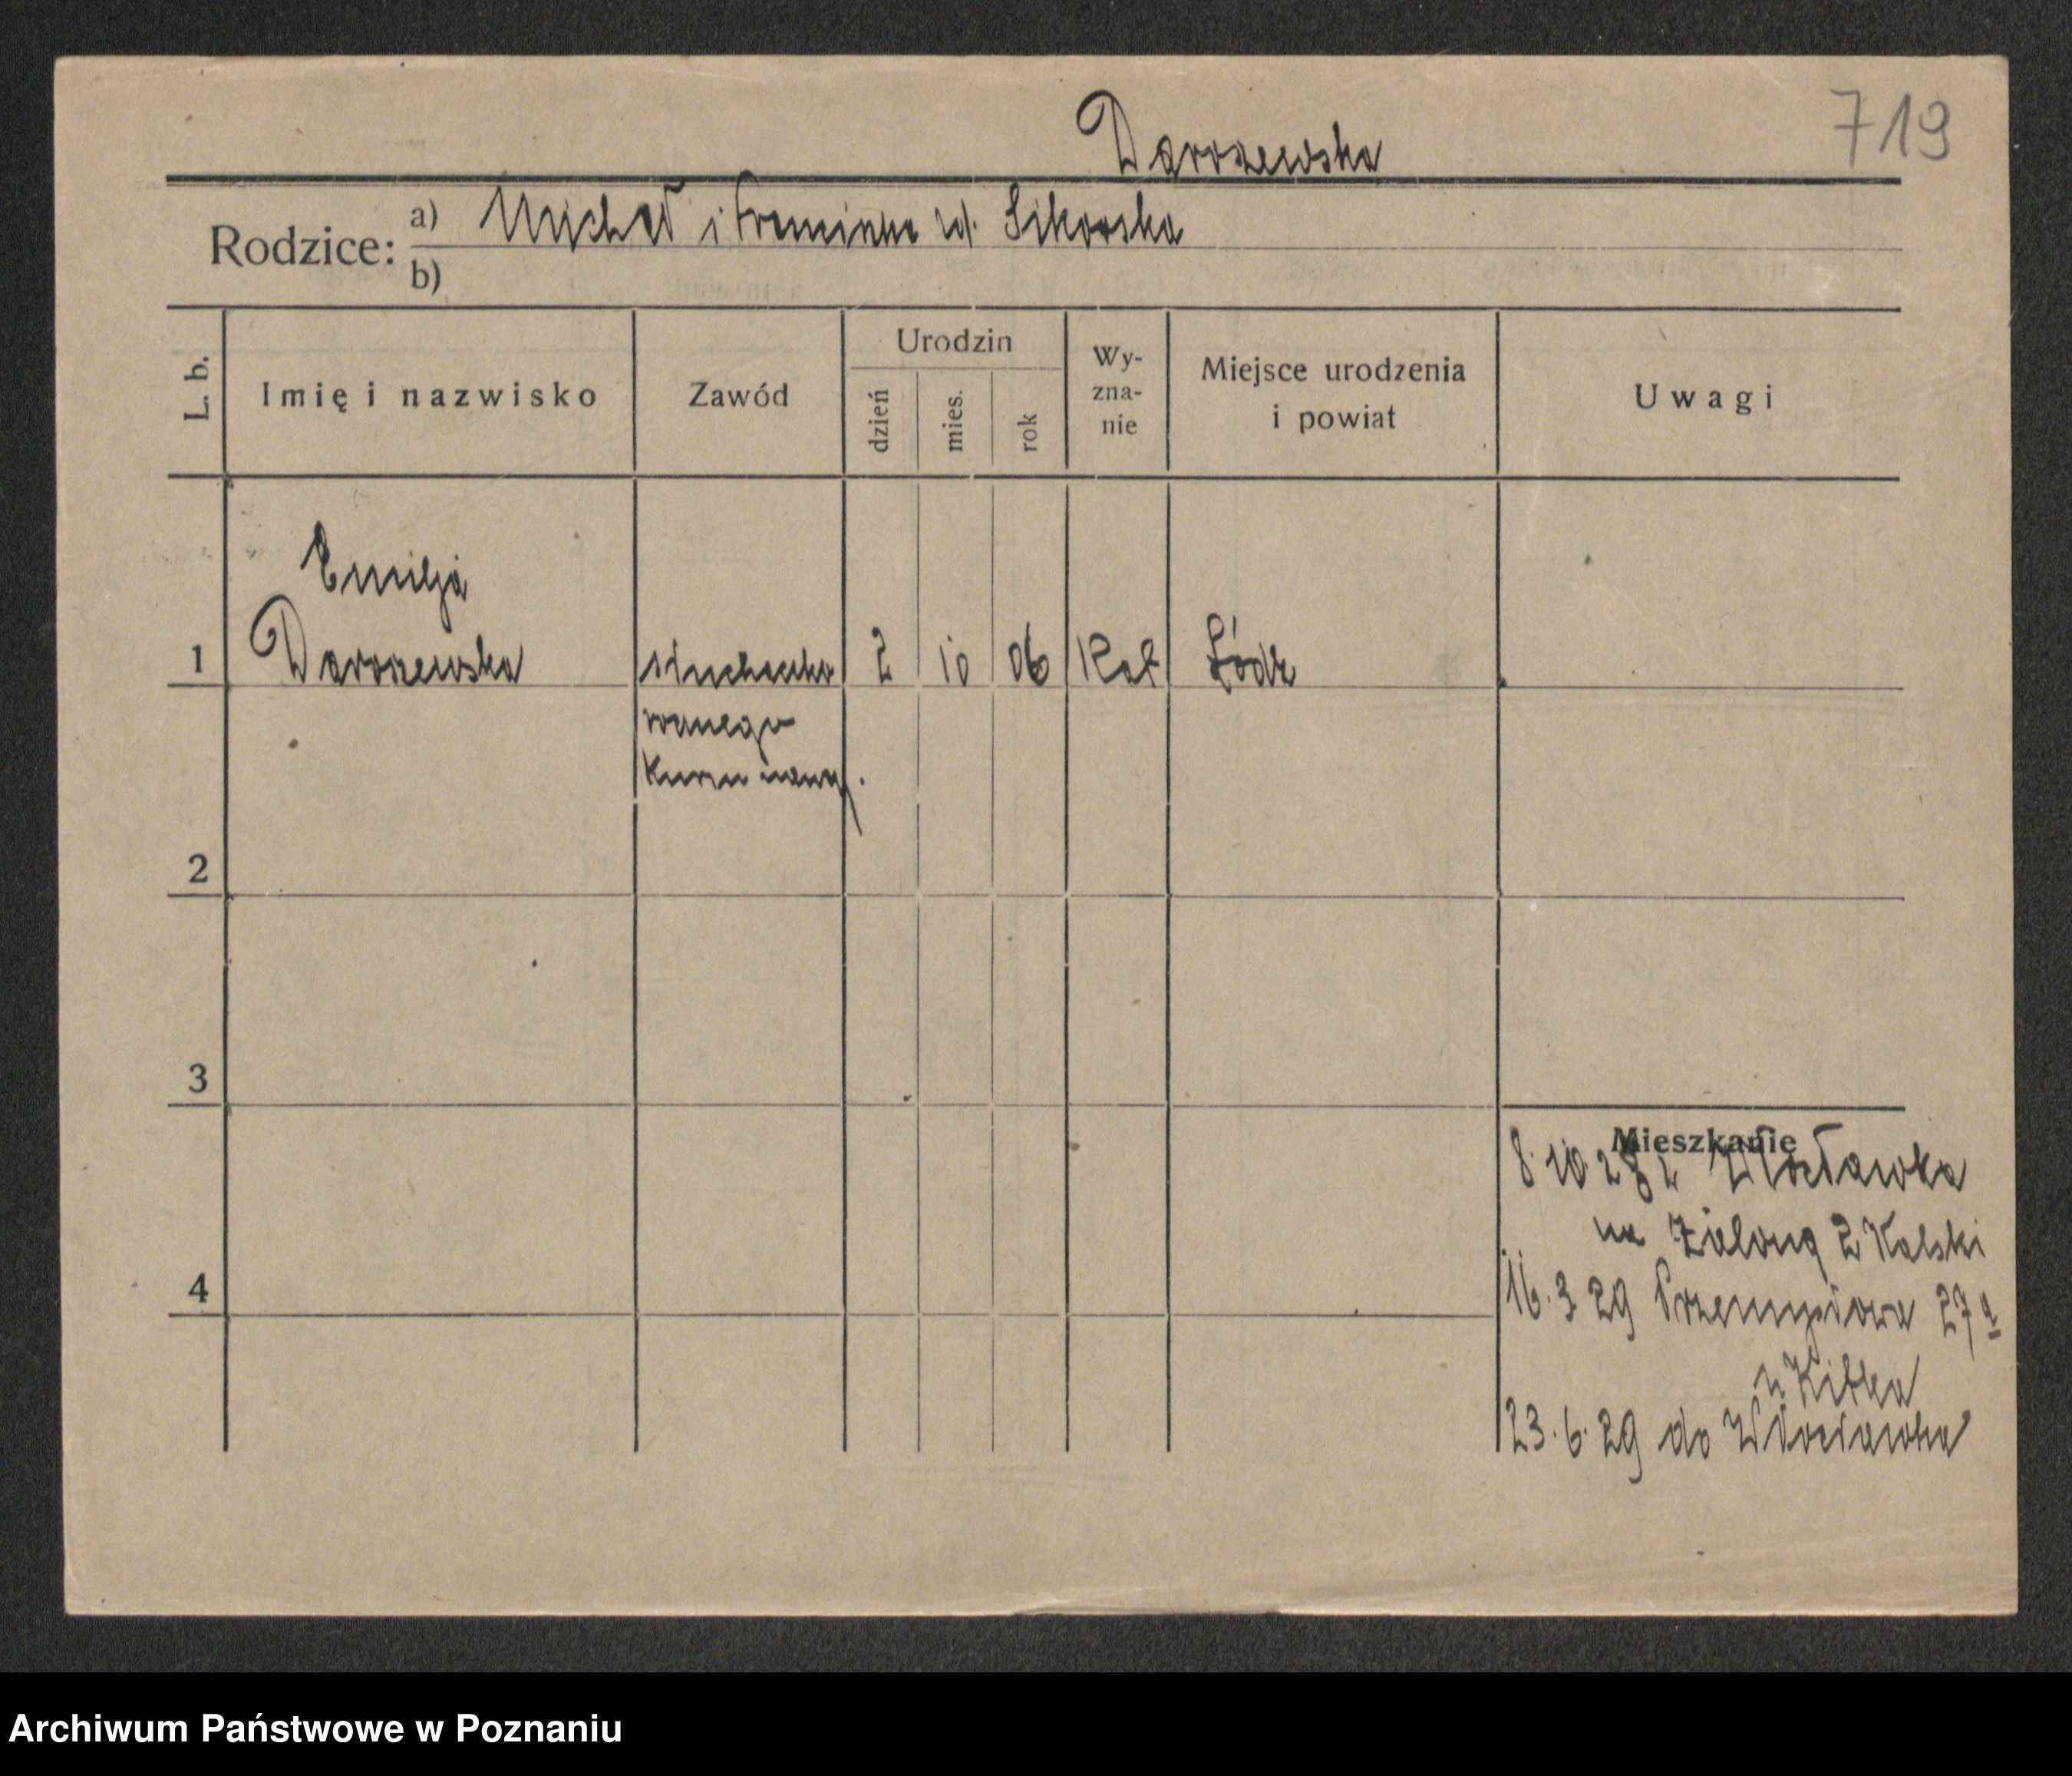 719
Daroszewska
Rodzice: a) Michał i Franciszka zd. Sikorska
b)
L. b. Imię i nazwisko Zawód Urodzin dzień mies. rok Wy-zna-nie Miejsce urodzenia i powiat Uwagi
Emilja
1 Daroszewska słuchaczka 2 10 06 Kat Łódź
kursu
2
3
Mieszkanie
8.10.28 z Włocławka
na Zieloną 2 Kalski
4
16.3.29 Przemysłowa 27a
23.6.29 do Włocławka
Archiwum Państwowe w Poznaniu